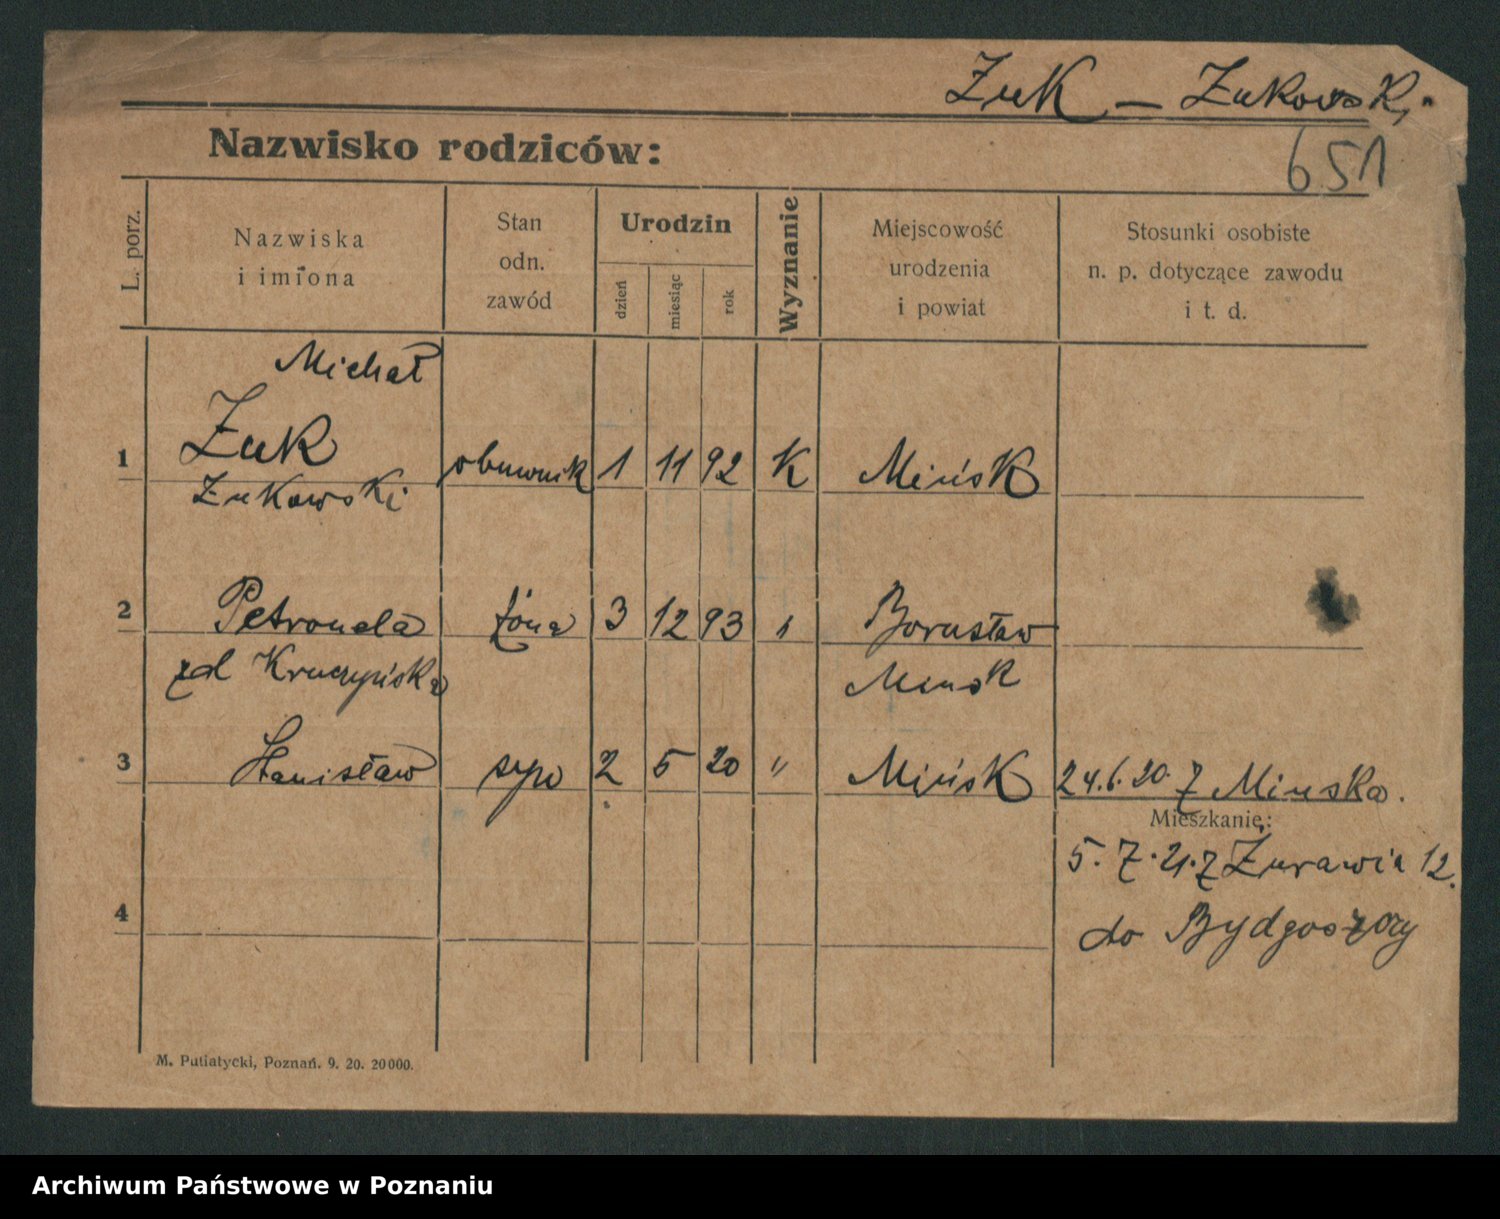 Żuk – Żukowski
651
Nazwisko rodziców:
L. porz.
Nazwiska
i imiona
Stan
odn.
zawód
Urodzin
dzień
miesiąc
rok
Wyznanie
Miejscowość
urodzenia
i powiat
Stosunki osobiste
n. p. dotyczące zawodu
i t. d.
Michał
1 Żuk obuwnik 1 11 92 K Mińsk
Żukowski
2 Petronela żona 3 12 93 " Borusław
zd Kruczyńska Mensk
3 Stanisław syn 2 5 20 " Mińsk 24.6.20. z Minska.
Mieszkanie:
5.7.21. z Żurawia 12.
4 do Bydgoszczy
M. Putiatycki, Poznań. 9. 20. 20000.
Archiwum Państwowe w Poznaniu